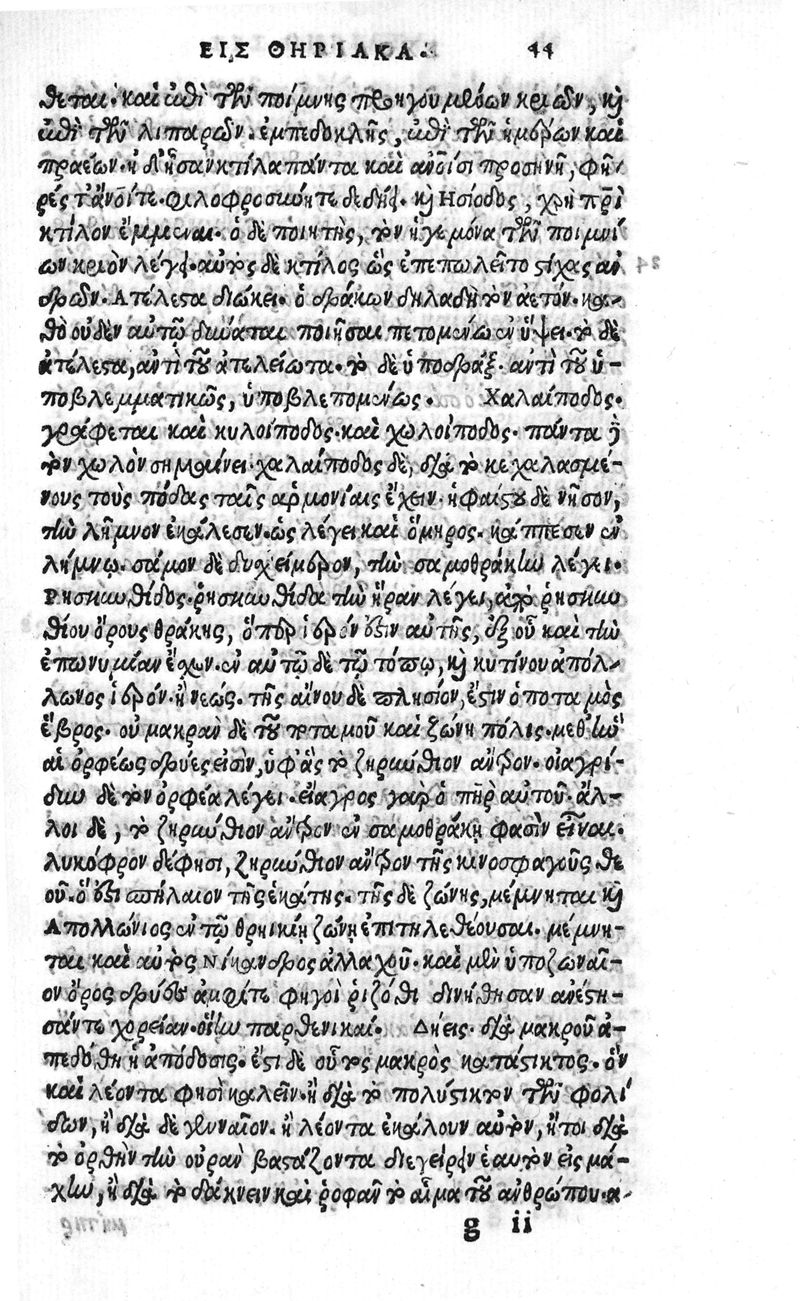 ΕΙΣ ΘΗΡΙΑΚΑ. 44
θεται. καὶ ἐπὶ τῶν ποίμνης προηγουμένων κριῶν, καὶ
ἐπὶ τῶν λιπαρῶν. ἐμπεδοκλῆς, ἐπὶ τῶν ἡμέρων καὶ
πραείων. ἠδ' ἦσαν κτίλα πάντα καὶ ἀνθρώποισι προσηνῆ, φῆ-
ρές τ' ἄνθρωποί τε. φιλοφροσύνη τε δεδήει. καὶ Ησίοδος, χρὴ πατρὶ
κτίλον ἔμμεναι. ὁ δὲ ποιητὴς, τὸν ἡγεμόνα τῶν ποιμνί
ων κριὸν λέγει. αὐτὸς δὲ κτίλος ὣς ἐπεπωλεῖτο στίχας ἀν
δρῶν. Ατέλεστα διώκει. ὁ δράκων δηλαδὴ τὸν ἀετόν. κα-
θὸ οὐδὲν αὐτῷ δύναται ποιῆσαι πετομένῳ ἐν ὕψει. τὸ δὲ
ἀτέλεστα, ἀντὶ τοῦ ἀτελείωτα. τὸ δὲ ὑποδράξ. ἀντὶ τοῦ ὑ-
ποβλεμματικῶς, ὑποβλεπομένως. Χαλαίποδος.
γράφεται καὶ κυλοίποδος. καὶ χωλοίποδος. πάντα δὲ
τὸν χωλὸν σημαίνει. χαλαίποδος δὲ, διὰ τὸ κεχαλασμέ-
νους τοὺς πόδας ταῖς ἁρμονίαις ἔχειν. ἡφαίστου δὲ νῆσον,
τὴν λῆμνον ἐκάλεσεν. ὡς λέγει καὶ ὅμηρος. κάππεσεν ἐν
λήμνῳ. σάμον δὲ δυσχείμερον, τὴν σαμοθράκην λέγει.
Ρησκυνθίδος. ῥησκυνθίδα τὴν ἥραν λέγει, ἀπὸ ῥησκυν
θίου ὄρους θράκης, ὅπερ ἱερόν ἐστιν αὐτῆς, ἐξ οὗ καὶ τὴν
ἐπωνυμίαν ἔχων. ἐν αὐτῷ δὲ τῷ τόπῳ, καὶ κυτίνου ἀπόλ-
λωνος ἱερόν. ἢ νεώς. τῆς αἴνου δὲ πλησίον, ἔστιν ὁ ποταμὸς
ἕβρος. οὐ μακρὰν δὲ τοῦ ποταμοῦ καὶ ζώνη πόλις. μεθ' ἣν
αἱ ὀρφέως δρύες εἰσὶν, ὑφ' ἃς τὸ ζηρύνθιον ἄντρον. οἰαγρί-
δην δὲ τὸν ὀρφέα λέγει. οἴαγρος γὰρ ὁ πατὴρ αὐτοῦ. ἄλ-
λοι δὲ, τὸ ζηρύνθιον ἄντρον ἐν σαμοθράκῃ φασὶν εἶναι.
λυκόφρον δέ φησι, ζηρύνθιον ἄντρον τῆς κυνοσφαγοῦς θε
οῦ. ὅ ἐστι σπήλαιον τῆς ἑκάτης. τῆς δὲ ζώνης, μέμνηται καὶ
Απολλώνιος ἐν τῷ θρηικίῃ ζώνῃ ἐπιτηλεθέουσαι. μέμνη-
ται καὶ αὐτὸς Νίκανδρος ἀλλαχοῦ. καὶ μὲν ὑποζωναῖ-
ον ὄρος δρύες ἀμφί τε φηγοὶ ῥιζόθι δινήθησαν ἀνέστη-
σάν τε χορείαν. οἵην παρθενικαί. Δήεις. διὰ μακροῦ ἀ-
πεδόθη ἡ ἀπόδοσις. ἔστι δὲ οὗτος μακρὸς κατάστικτος. ὃν
καὶ λέοντα φησὶ καλεῖν. ἢ διὰ τὸ πολύστικτον τῶν φολί
δων, ἢ διὰ δὲ γενναῖον. ἢ λέοντα ἐκάλουν αὐτὸν, ἤτοι διὰ
τὸ ὀρθὴν τὴν οὐρὰν βαστάζοντα διεγείρειν ἑαυτὸν εἰς μά-
χην, ἢ διὰ τὸ δάκνειν καὶ ῥοφᾶν τὸ αἷμα τοῦ ἀνθρώπου. α-
g ii